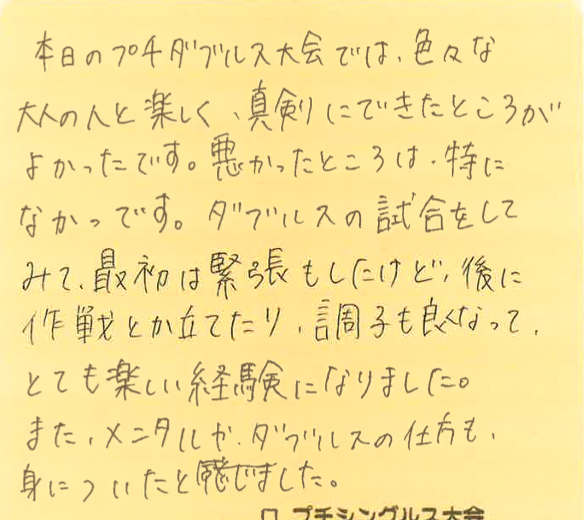 本日のプチダブルス大会では、色々な
大人の人と楽しく、真剣にできたところが
よかったです。悪かったところは、特に
なかっです。ダブルスの試合をして
みて、最初は緊張もしたけど、後に
作戦とか立てたり、調子も良くなって、
とても楽しい経験になりました。
また、メンタルや、ダブルスの仕方も、
身についたと感じました。
□ プチシングルス大会